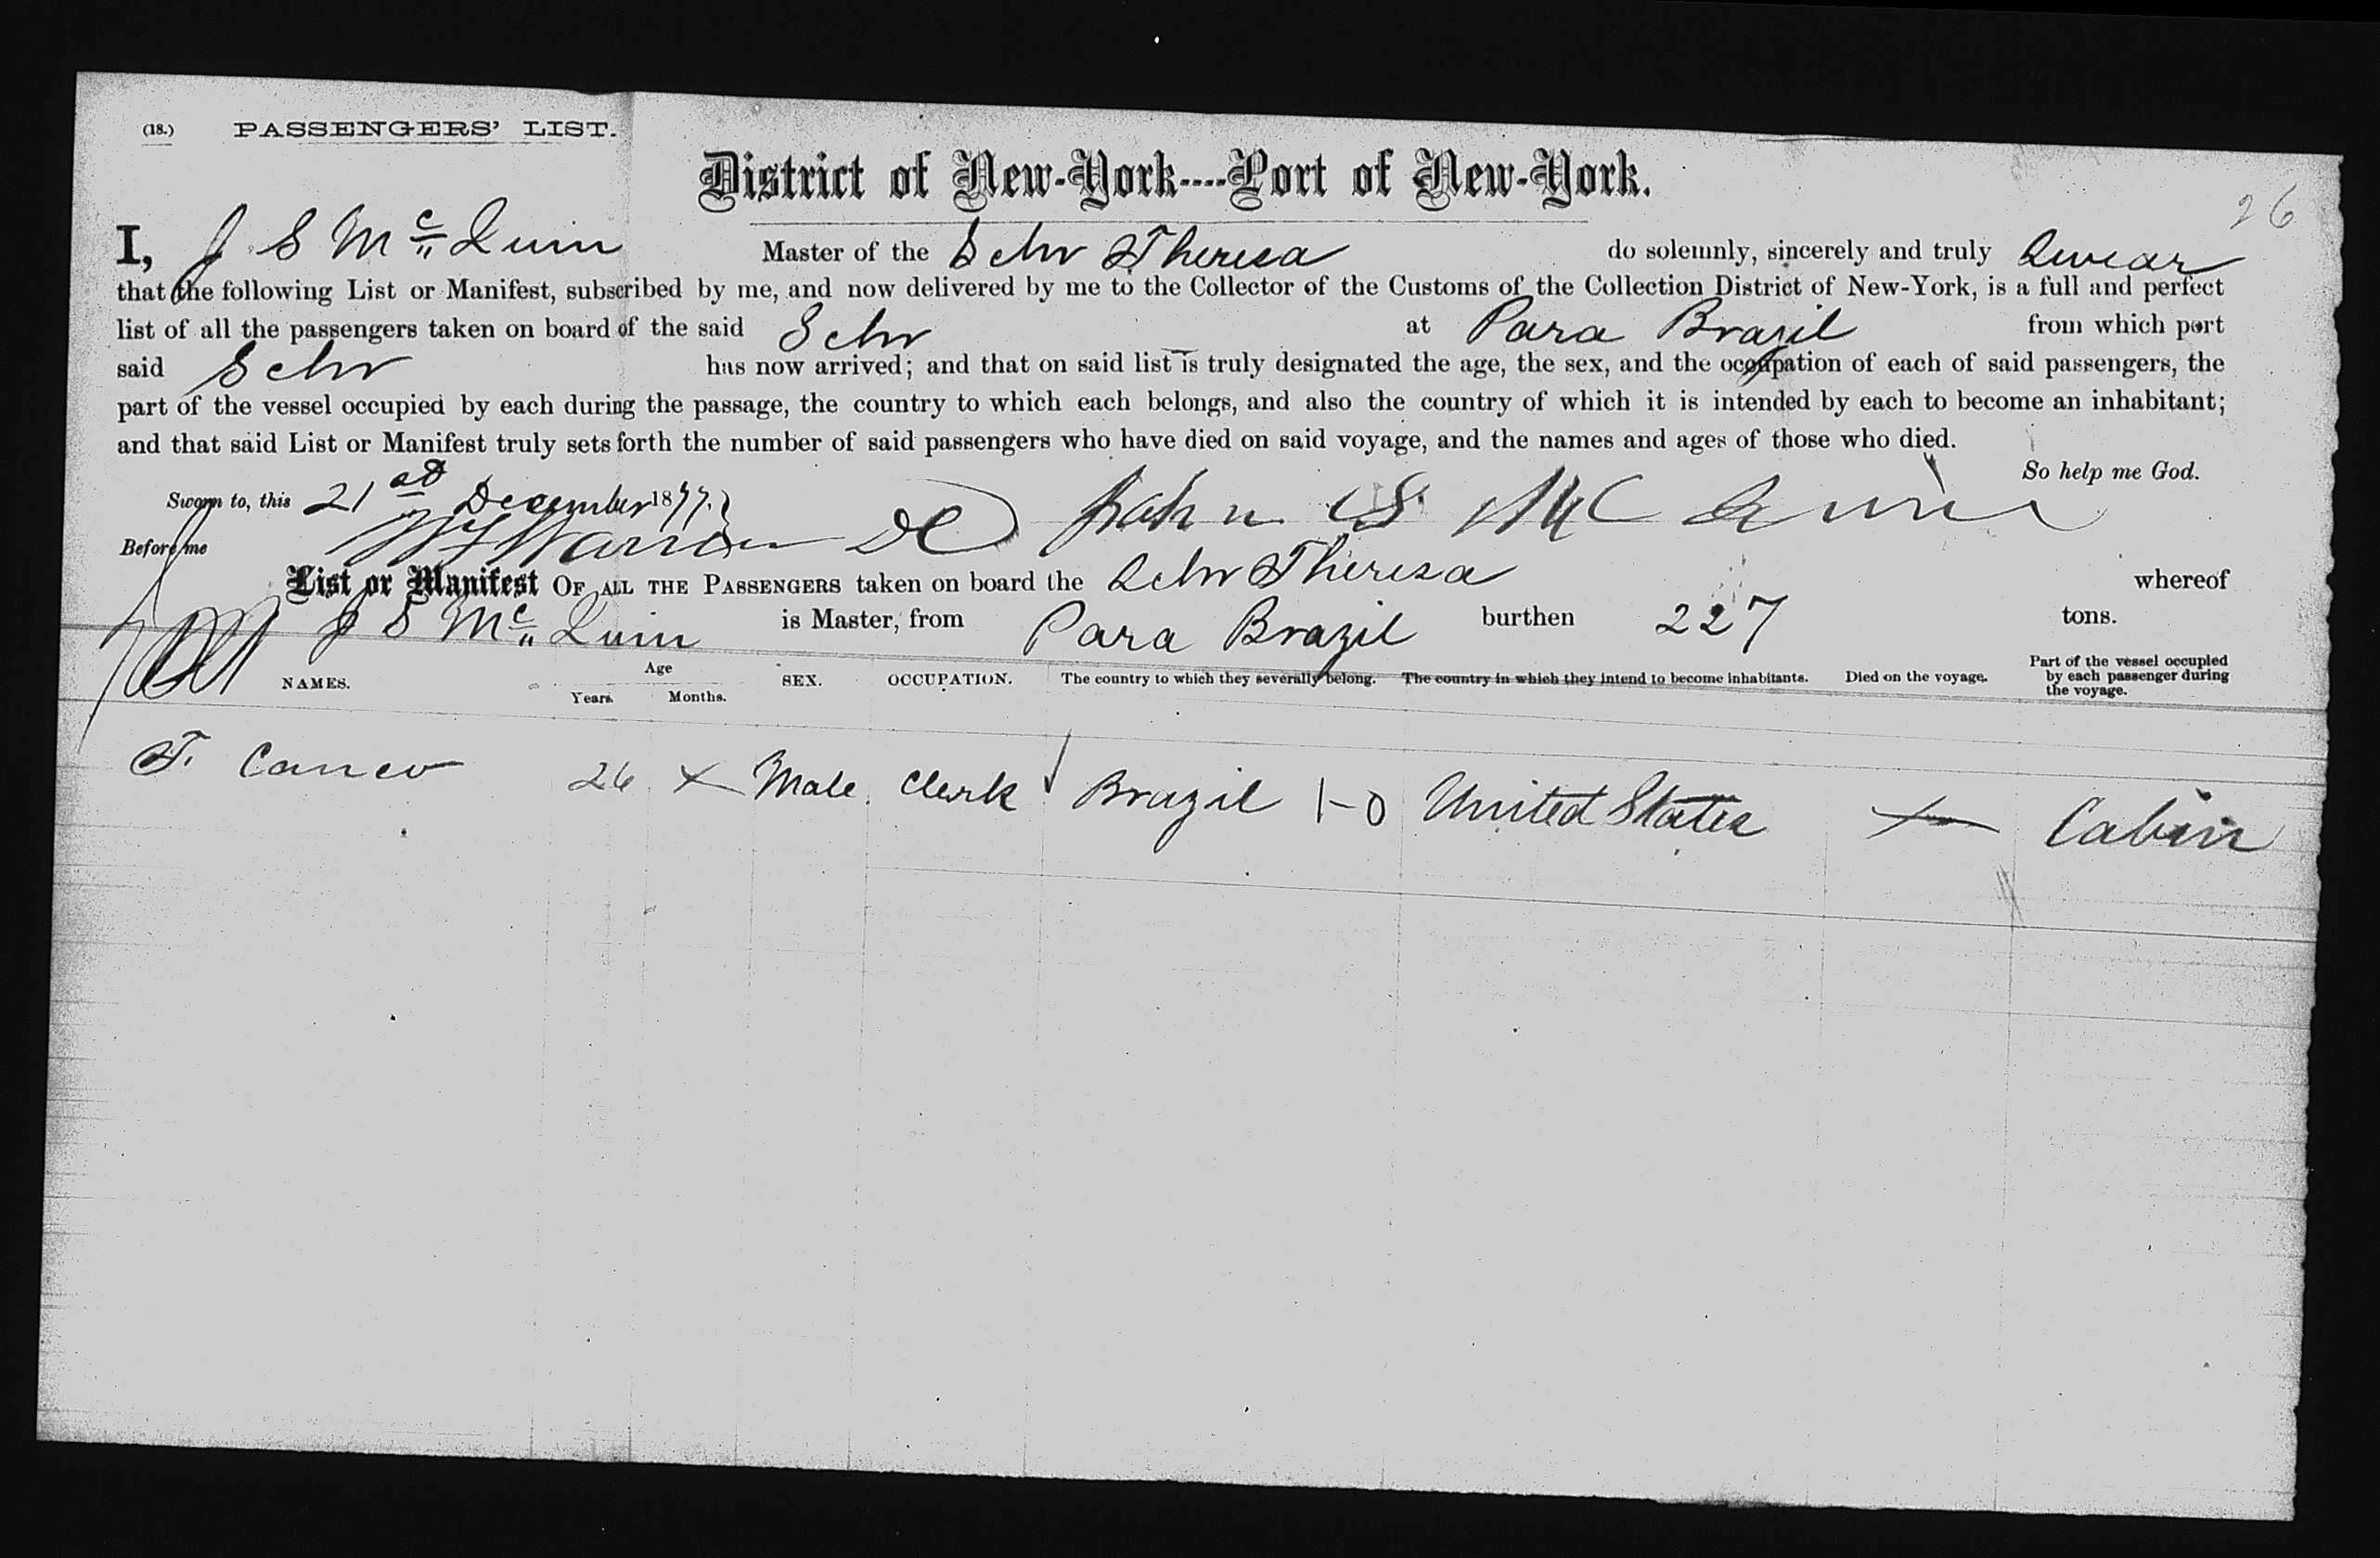 (18.) PASSENGERS' LIST.
District of New-York----Port of New-York.
26
I, J S Mc Quin Master of the Schr Theresa do solemnly, sincerely and truly Swear
that the following List or Manifest, subscribed by me, and now delivered by me to the Collector of the Customs of the Collection District of New-York, is a full and perfect
list of all the passengers taken on board of the said Schr at Para Brazil from which port
said Schr has now arrived; and that on said list is truly designated the age, the sex, and the occupation of each of said passengers, the
part of the vessel occupied by each during the passage, the country to which each belongs, and also the country of which it is intended by each to become an inhabitant;
and that said List or Manifest truly sets forth the number of said passengers who have died on said voyage, and the names and ages of those who died.
So help me God.
Sworn to, this 21st December 1877. John S McQuin
Before me Warren DC
List or Manifest OF ALL THE PASSENGERS taken on board the Schr Theresa whereof
J S Mc Quin is Master, from Para Brazil burthen 227 tons.
NAMES. Age Years. Months. SEX. OCCUPATION. The country to which they severally belong. The country in which they intend to become inhabitants. Died on the voyage. Part of the vessel occupied by each passenger during the voyage.
F. 26 Male. Clerk Brazil 1-0 United States Cabin